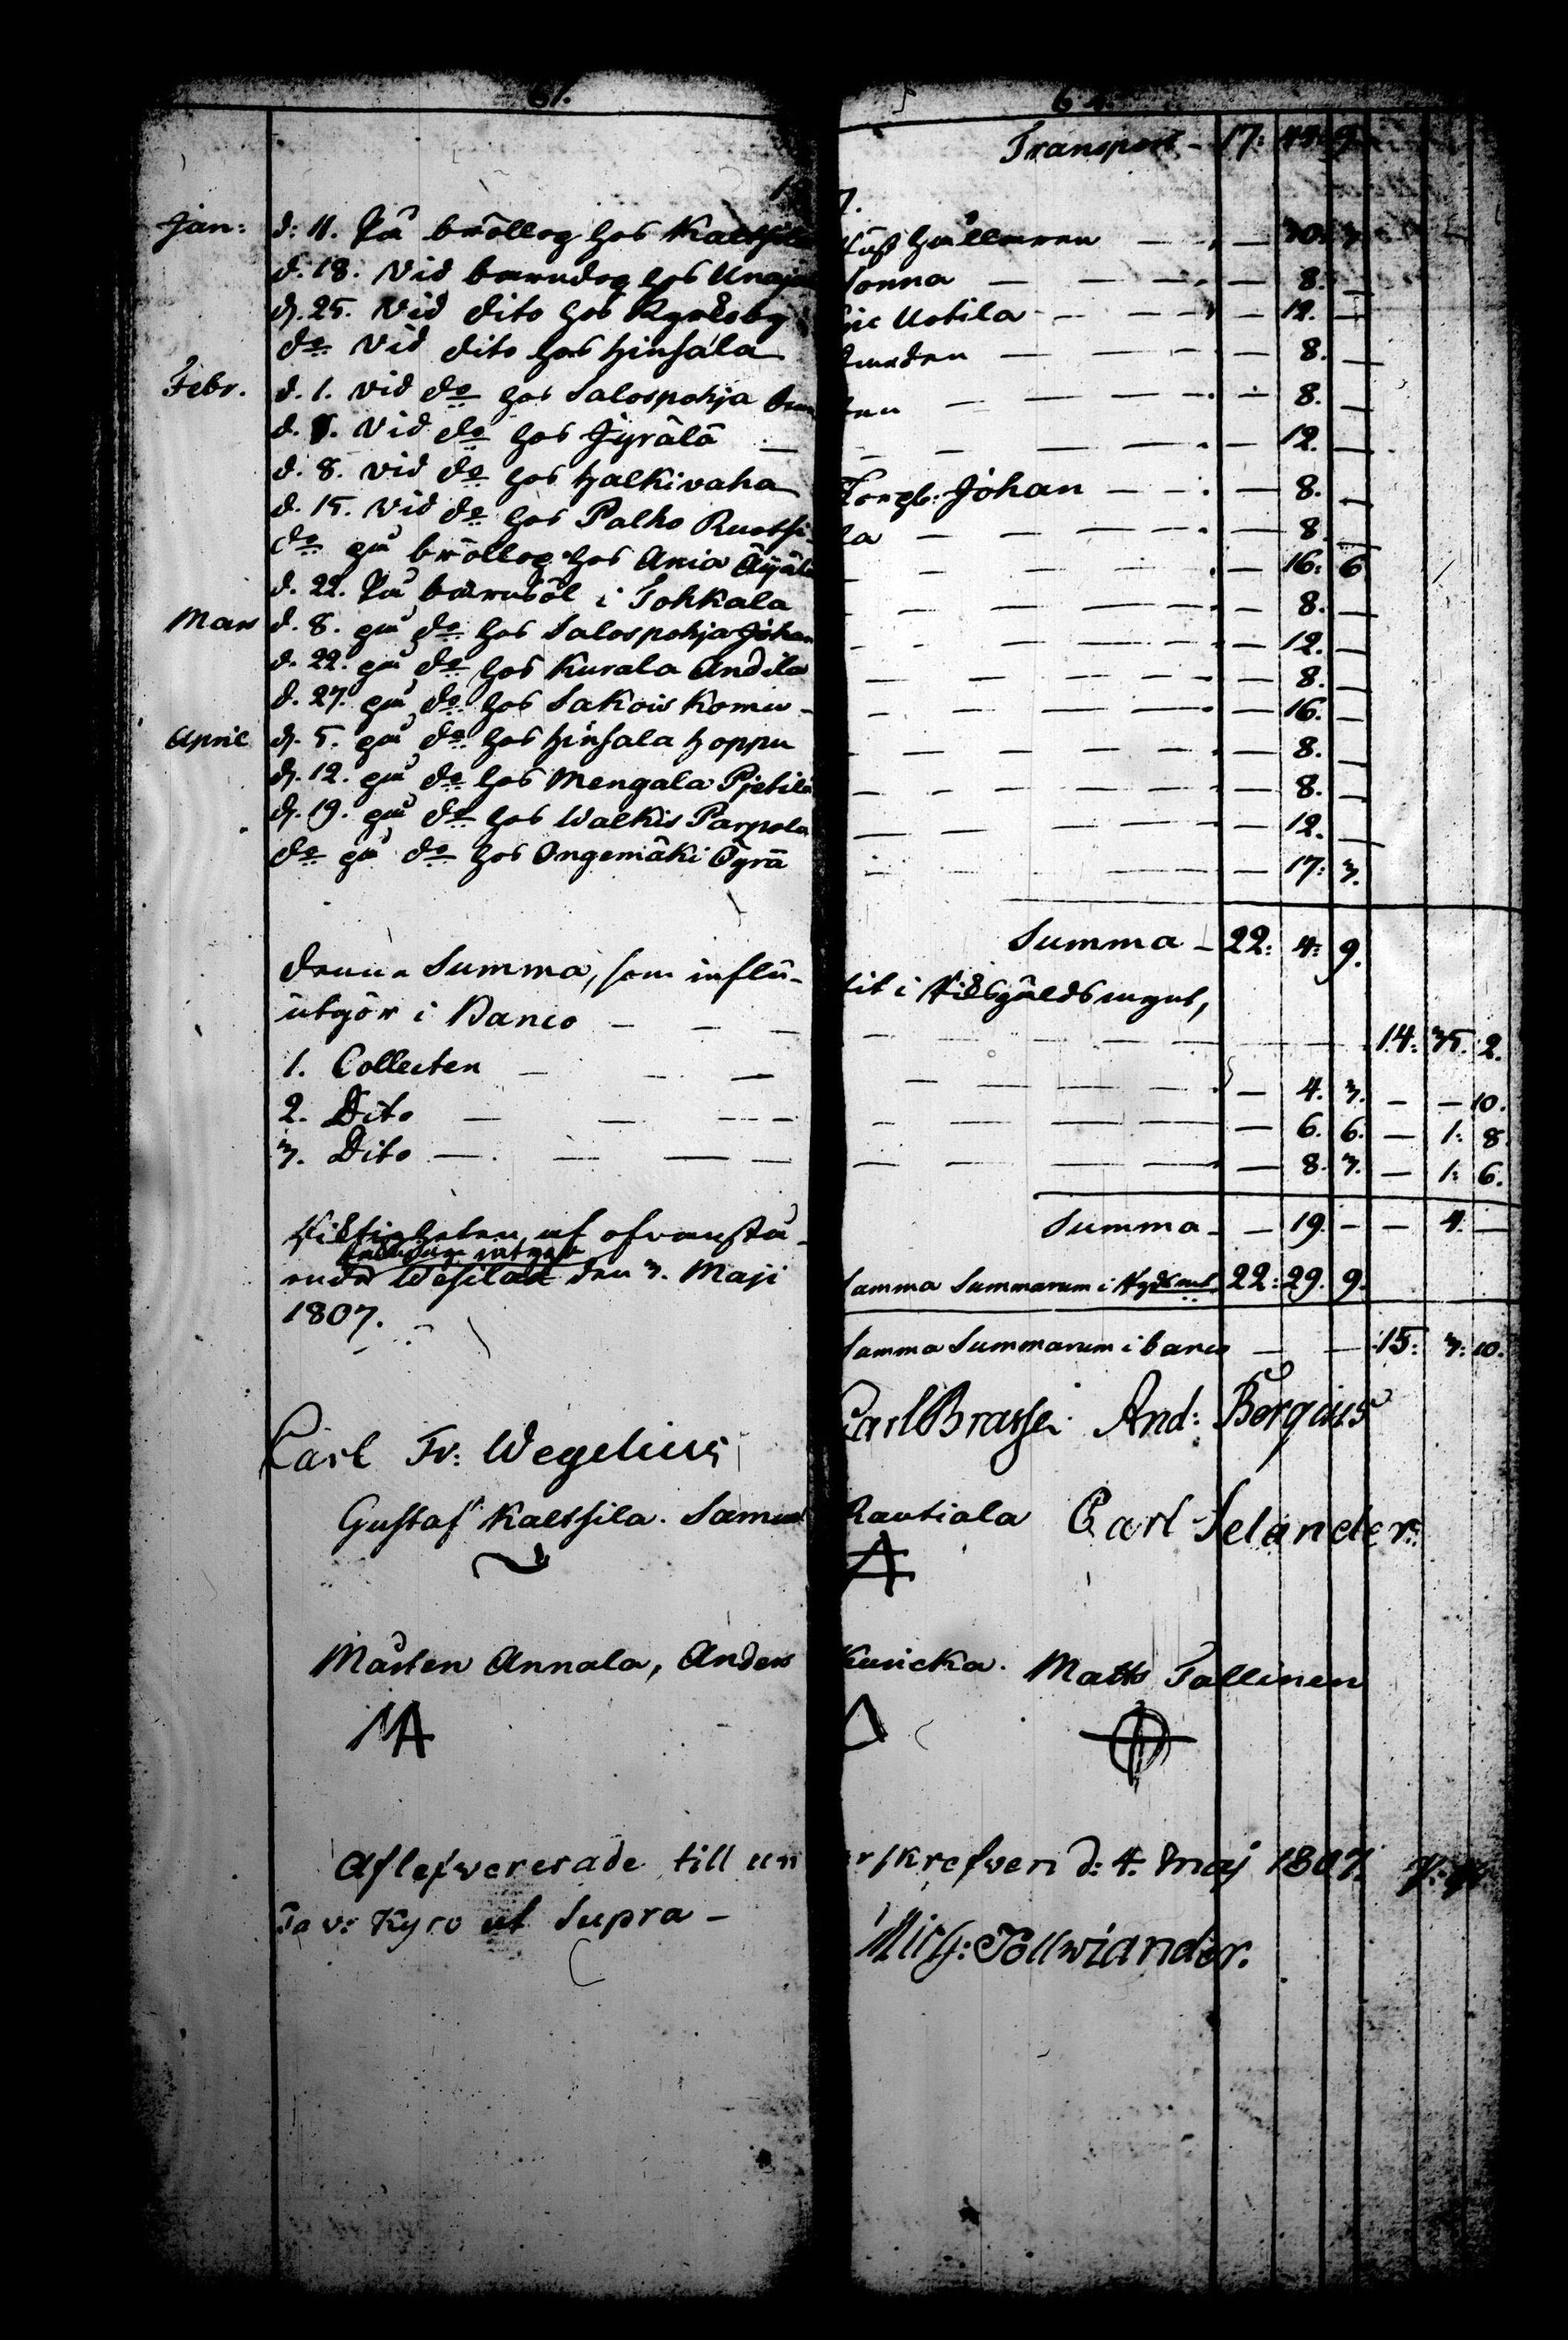 61.
64.
Transport - 17: 44: 9.
Jan: d: 11. På bröllog hos Kaltsila hållaren — — 30. 3.
d. 18. Vid barndog hos Unaja Jonna — — 8. —
d. 25. Vid dito hos Kyrkoby Uotila — — 12. —
do Vid dito hos Hinsala — — 8. —
Febr. d. 1. vid do hos Salospohja — — 8. —
d. 8. Vid do hos Jyrälä — — 12. —
d. 8. vid do hos Halkivaha Torp: Johan — — 8. —
d. 15. vid do hos Palho Ruotsila — — 8. —
do på bröllog hos Ania Äijälä — — 16: 6
d. 22. På barnsöl i Tohkala — — 8. —
Mars d. 8. på do hos Salospohja Johan — — 12. —
d. 22. på do hos Kurala Andila — — 8. —
d. 27. på do hos Sakois Komu — — 16. —
April d. 5. på do hos Hinsala Hoppu — — 8. —
d. 12. på do hos Mengala Pjetilä — — 8. —
d. 19. på do hos Walkis Parpola — — 12. —
do på do hos Ongemäki Ögrä — — 17: 3.
Summa - 22: 4: 9.
denna Summa, som influ- tit i Riksgälds mynt,
utgör i Banco — — — 14: 35. 2.
1. Collecten — — — 4. 3. — — 10.
2. Dito — — — 6. 6. — 1: 8.
3. Dito — — — 8. 3. — 1: 6.
Summa - — 19. — — 4. —
Riktigheten af ofvanstå-
ende Wesilax den 3. Maji
1807.
Summa Summarum i 22: 29. 9.
Summa Summarum i banco — — 15: 3: 10.
Carl Fr: Wegelius Carl Brasse And: Bergius
Gustaf Kaltsila. Samuel Rautiala Carl Selander.
Mårten Annala, Anders Kuricka. Matts Tallinen
MA
Aflefwererade till underskrefven d: 4. Maj 1807.
Tav: Kyro ut Supra -
Mich: Pollwiander.